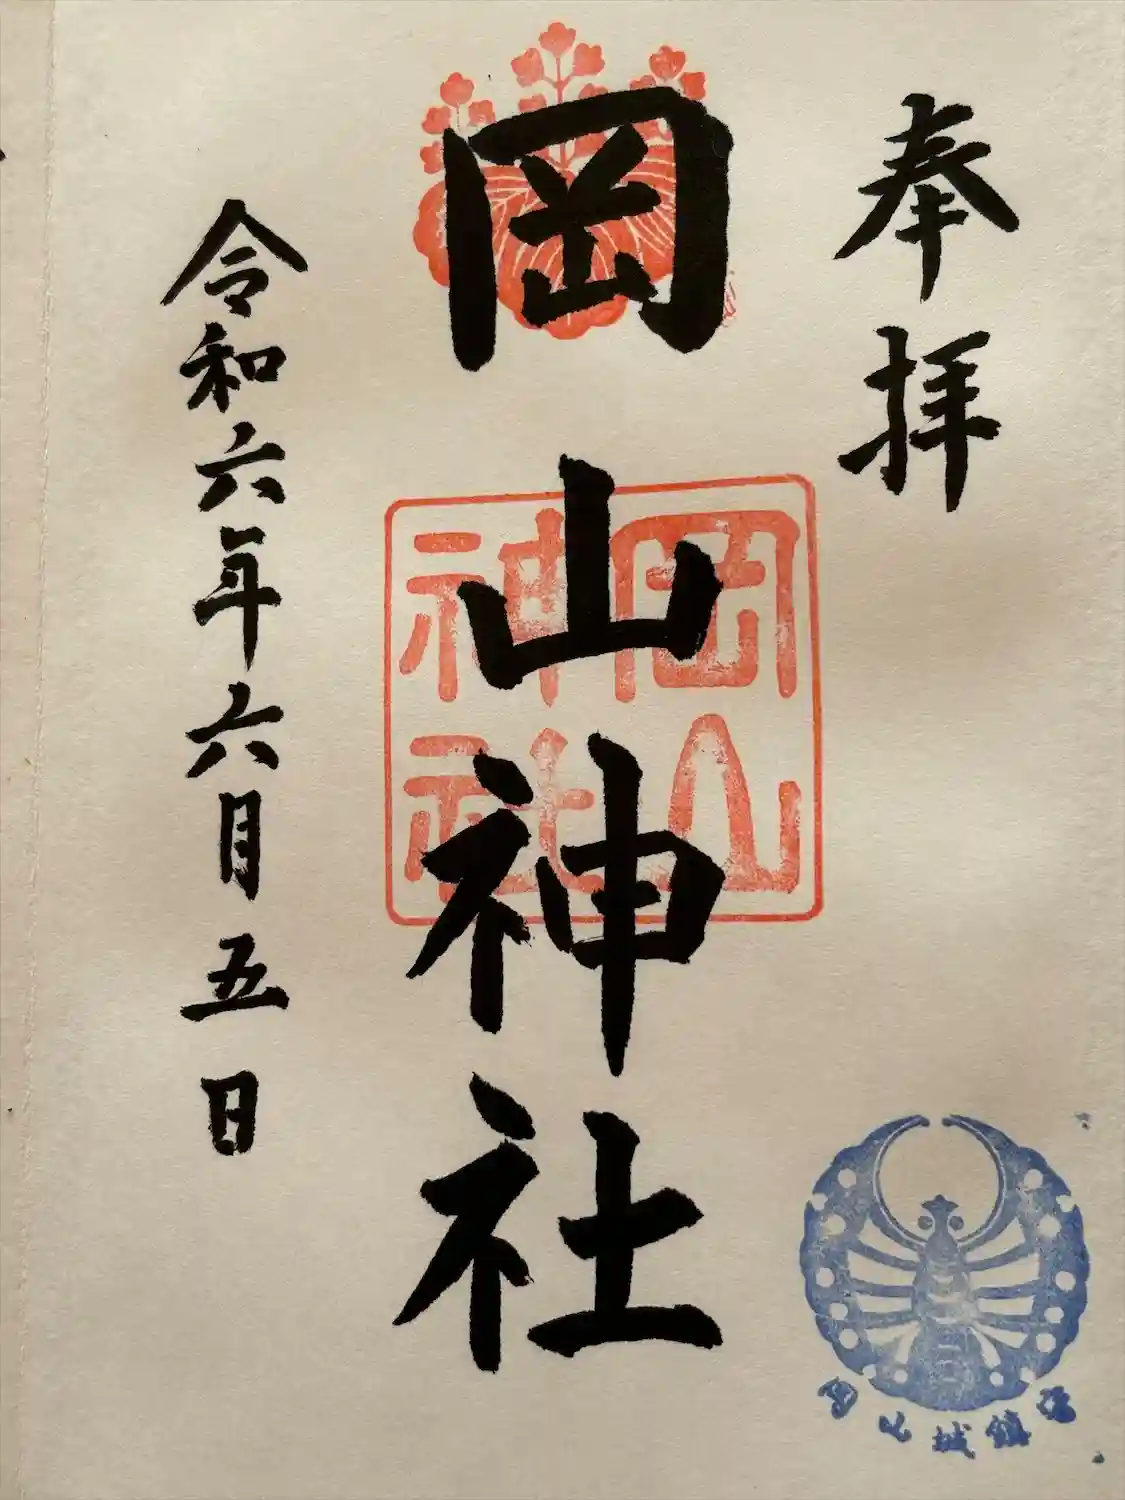 奉拝
岡山神社
岡山
神社
令和六年六月五日
岡山城鎮守